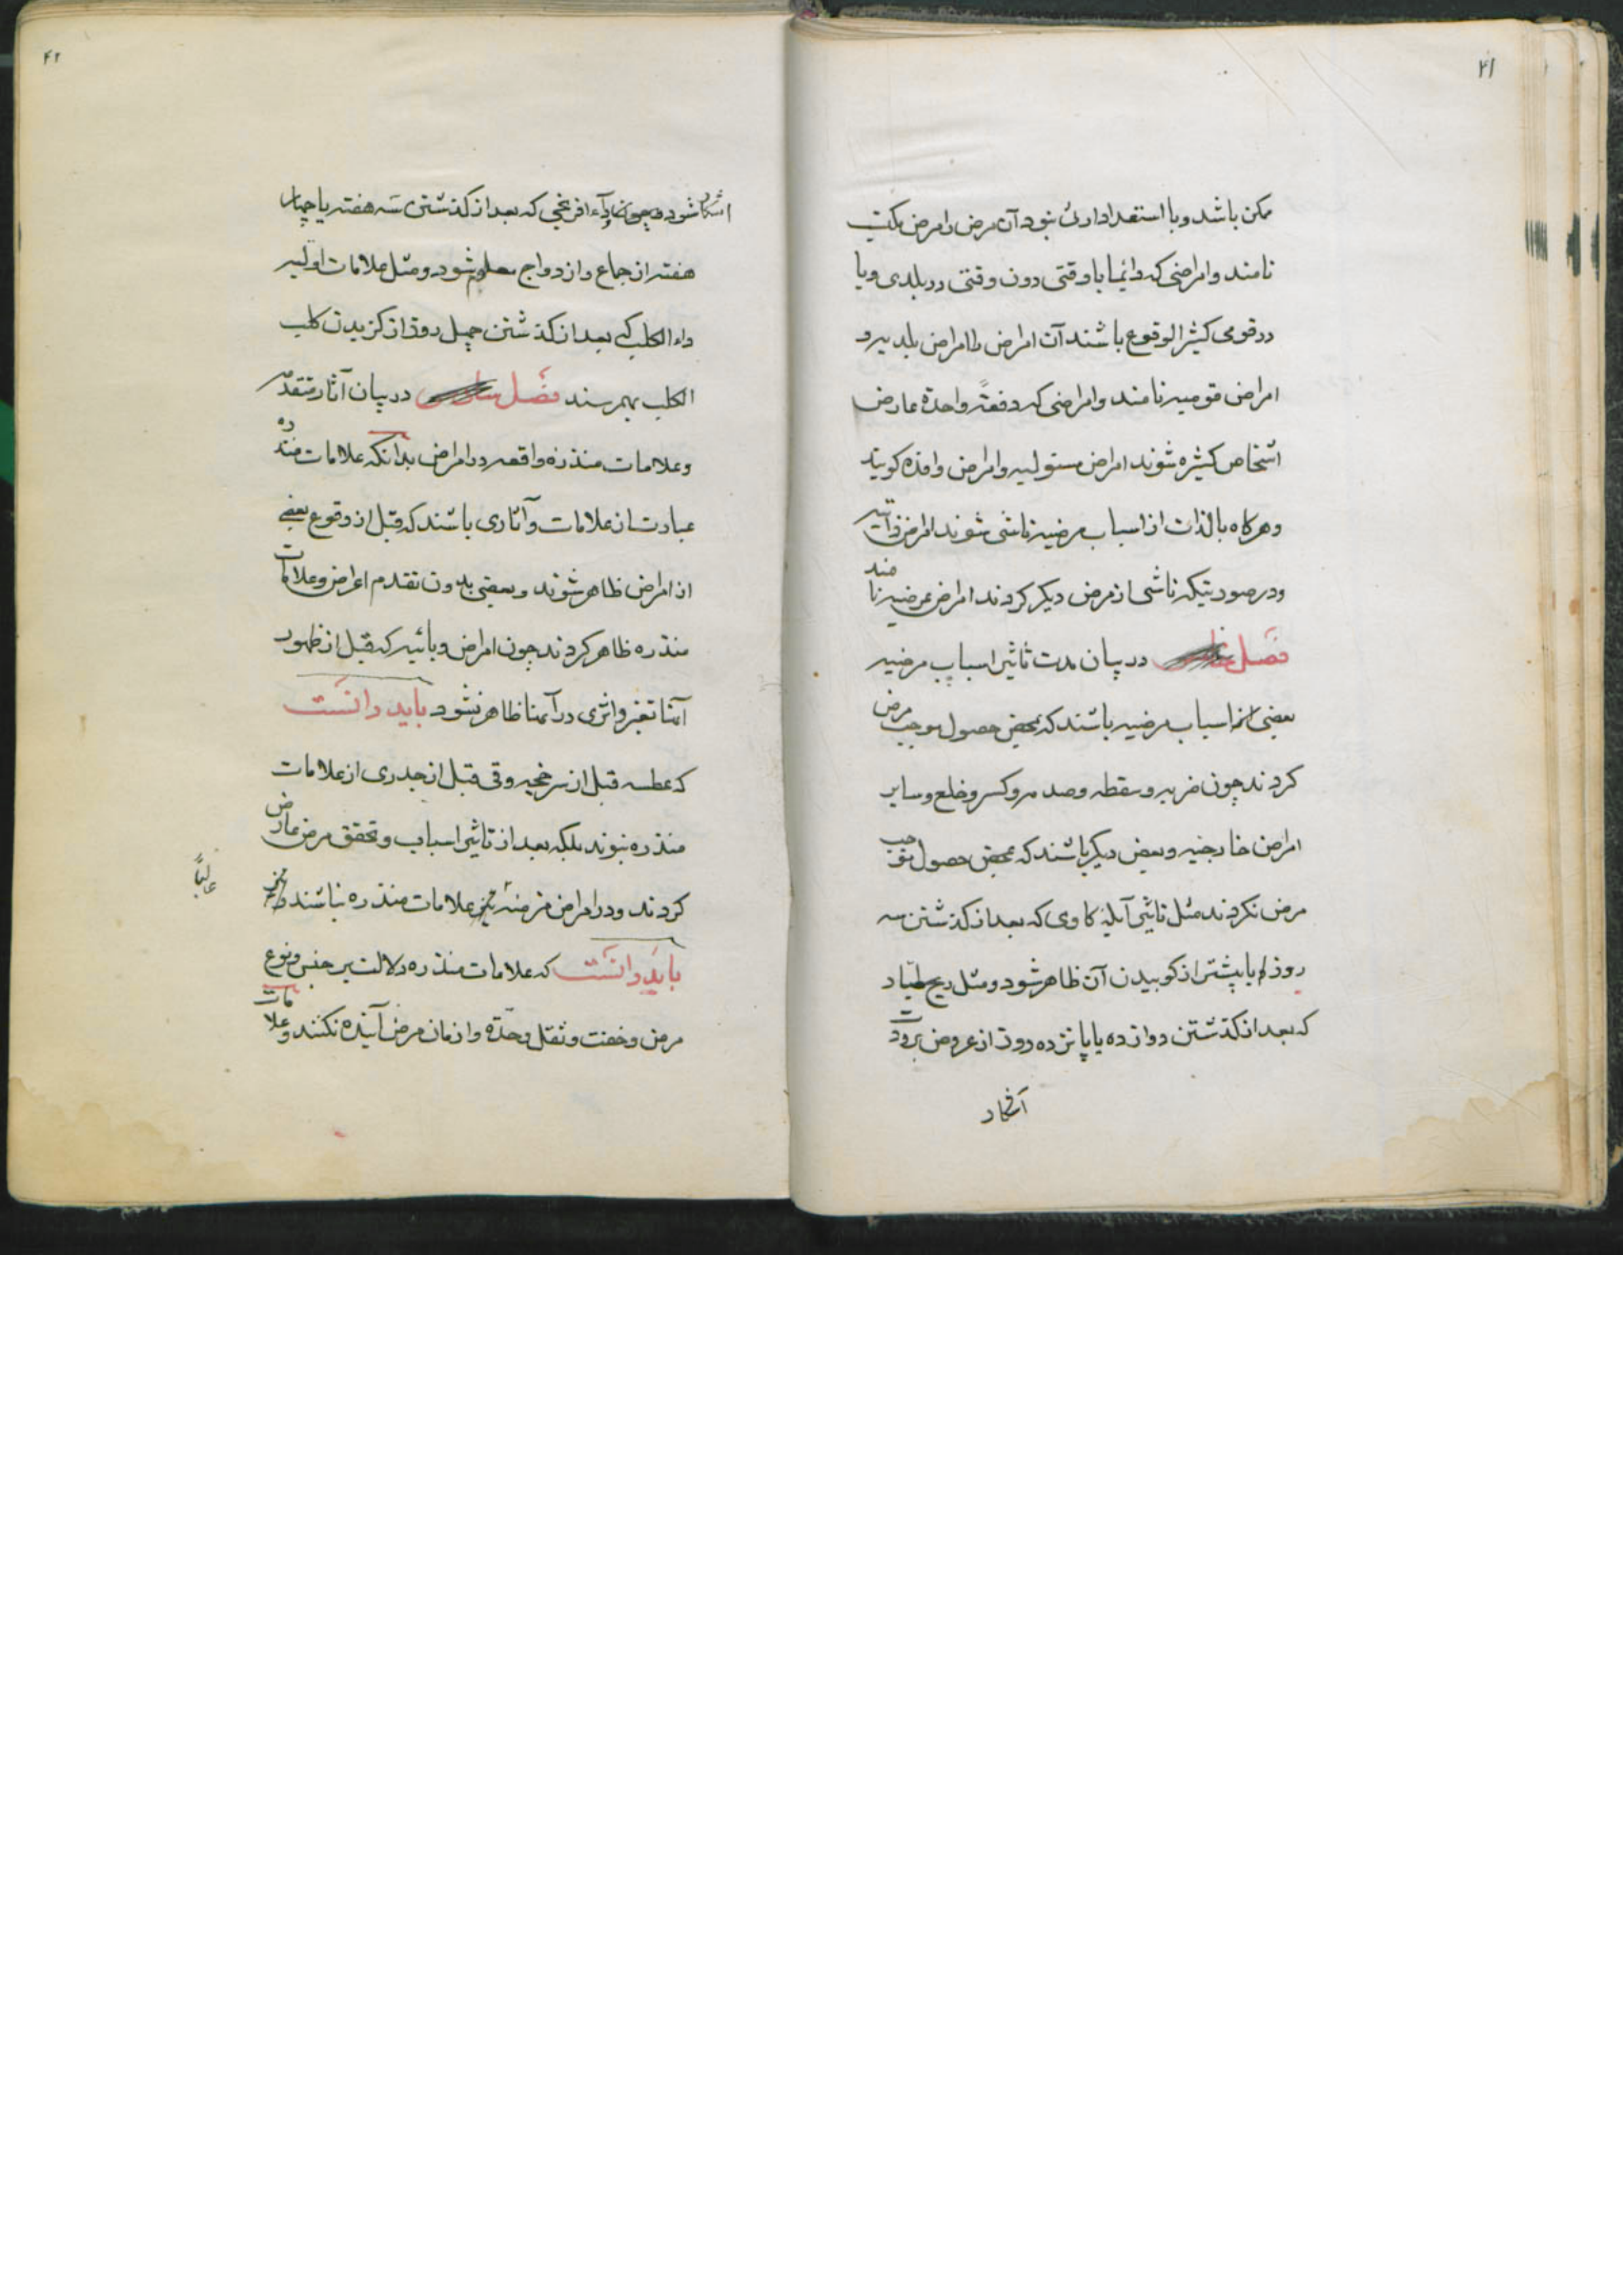 ۴۱
ممکن باشد و با استعداد ارثی نبود آن مرض را مرض مکتسب
نامند و امراضی که دائما یا وقتی دون وقتی در بلدی و یا
در قومی کثیر الوقوع باشند آن امراض را امراض بلدیه و
امراض قومیه نامند و امراضی که دفعةً واحدة عارض
اشخاص کثیره شوند امراض مستولیه و امراض وافده کویند
و هر کاه بالذات از اسباب مرضیه ناشی شوند امراض ذاتیه
و در صورتیکه ناشی از مرض دیکر کردند امراض عرضیه نامند
فصل در بیان مدت تاثیر اسباب مرضیه
بعضی از اسباب مرضیه باشند که بمحض حصول موجب مرض
کردند چون ضربه و سقطه و صدمه و کسر و خلع و سایر
امراض خارجیه و بعض دیکر باشند که بمحض حصول موجب
مرض نکردند مثل تاثیر آبلهٔ کاوی که بعد از کذشتن سه
روز او یا پیشتر از کوبیدن آن ظاهر شود و مثل ریح
که بعد از کذشتن دوازده یا پانزده روز از عروض برودت
آشکار
۴۲
آشکار شود و چون داء افرنجی که بعد از کذشتن سه هفته یا چهار
هفته از جماع و ازدواج معلوم شود و مثل علامات اولیه
داء الکلب که بعد از کذشتن چهل روز از کزیدن کلب
الکلب بهم رسند فصل در بیان آثار متقدمه
و علامات منذره واقعه در امراض بدانکه علامات منذره
عبارت از علامات و آثاری باشند که قبل از وقوع بعضی
از امراض ظاهر شوند و بعضی بدون تقدم اعراض و علامات
منذره ظاهر کردند چون امراض وبائیه که قبل از ظهور
آنها تغیر و اثری در آنها ظاهر نشود باید دانست
که عطسه قبل از سرخجه و قی قبل از جدری از علامات
منذره نبوند بلکه بعد از تاثیر اسباب و تحقق مرض عارض
کردند و در امراض مزمنه نیز علامات منذره نباشند
غالباً
باید دانست که علامات منذره دلالت بر جنس و نوع
مرض و خفت و ثقل و حدّة و ازمان مرض آینده نکنند و علامات